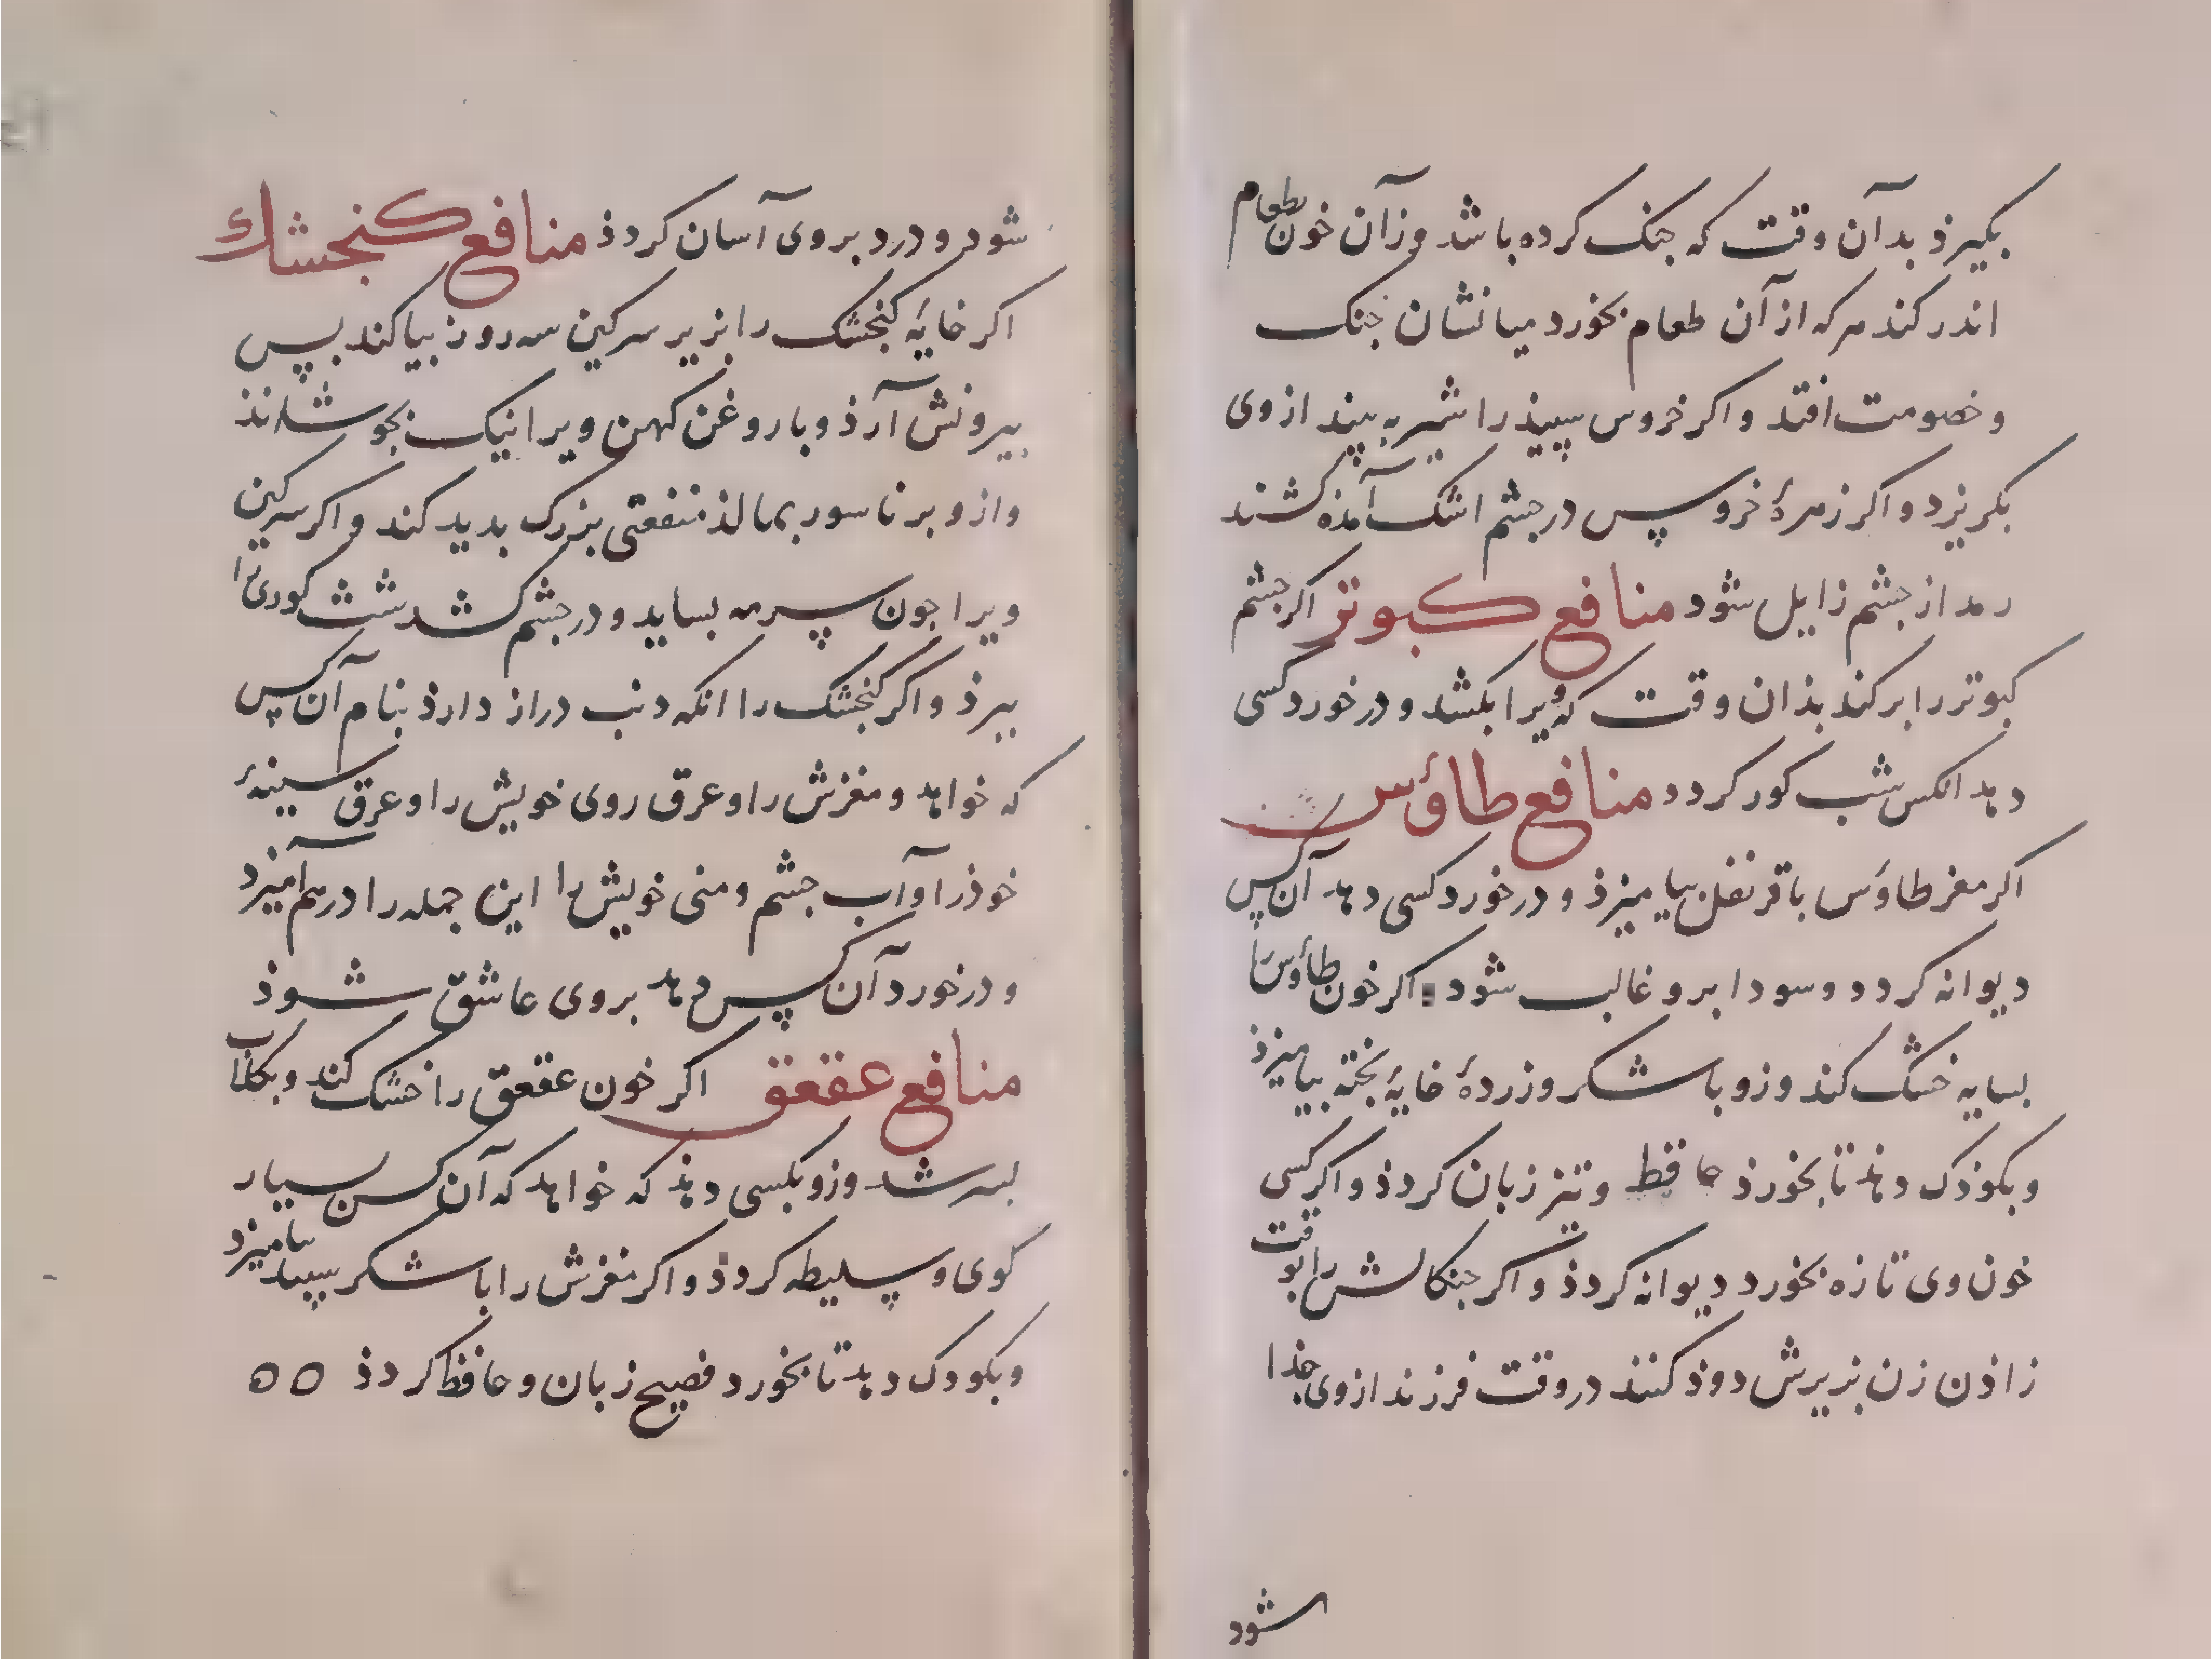 بکیرذ بدآن وقت که جنک کرده باشد وزآن خون بطعام
اندر کند هرکه از آن طعام بخورد میانشان جنک
و خصومت افتد و اکر خروس سپیذ را شیر به بیند از وی
بکریزد و اکر زمرهٔ خروس در جشم اشک آمذه کشند
رمد از جشم زایل شود منافع کبوتر اکر جشم
کبوتر را برکند بذان وقت که ویرا بکشد و در خورد کسی
دهد انکس شب کور کردد منافع طاؤس
اکر مغز طاؤس با قرنفل بیامیزذ و در خورد کسی دهد آن کس
دیوانه کردد و سودا برو غالب شود اکر خون طاؤس را
بسایه خشک کند وزو با شکر و زردهٔ خایهٔ بخته بیامیزذ
و بکوذک دهند تا بخورذ حافظ و تیز زبان کردذ و اکر کسی
خون وی تازه بخورد دیوانه کردذ و اکر جنکالش را بوقت
زاذن زن بزیرش دوذ کنند در وقت فرزند از وی جذا
شود
شود و درد بروی آسان کردذ منافع کنجشك
اکر خایهٔ کنجشک را بزیر سرکین سه روز بیاکند بس
بیرونش آرذ و با روغن کهن ویرا نیک بجوشانذ
و ازو بر ناسور بمالذ منفعتی بزرک بدید کند و اکر سرکین
ویرا جون سرمه بساید و در جشم کشد شب کوری را
ببرذ و اکر کنجشک را انکه دنب دراز دارذ بنام آن کس
که خواهد و مغزش را و عرق روی خویش را و عرق سینهٔ
خوذ را و آب جشم و منی خویش را این جمله را درهم آمیزد
و در خورد آن کس دهد بروی عاشق شوذ
منافع عقعق اکر خون عقعق را خشک کند و بکلاب
بسرشد وزو بکسی دهذ که خواهد که آن کس بسیار
کوی و سلیطه کردذ و اکر مغزش را با شکر سپید بیامیزد
و بکودک دهد تا بخورد فصیح زبان و حافظ کردذ ۵۵